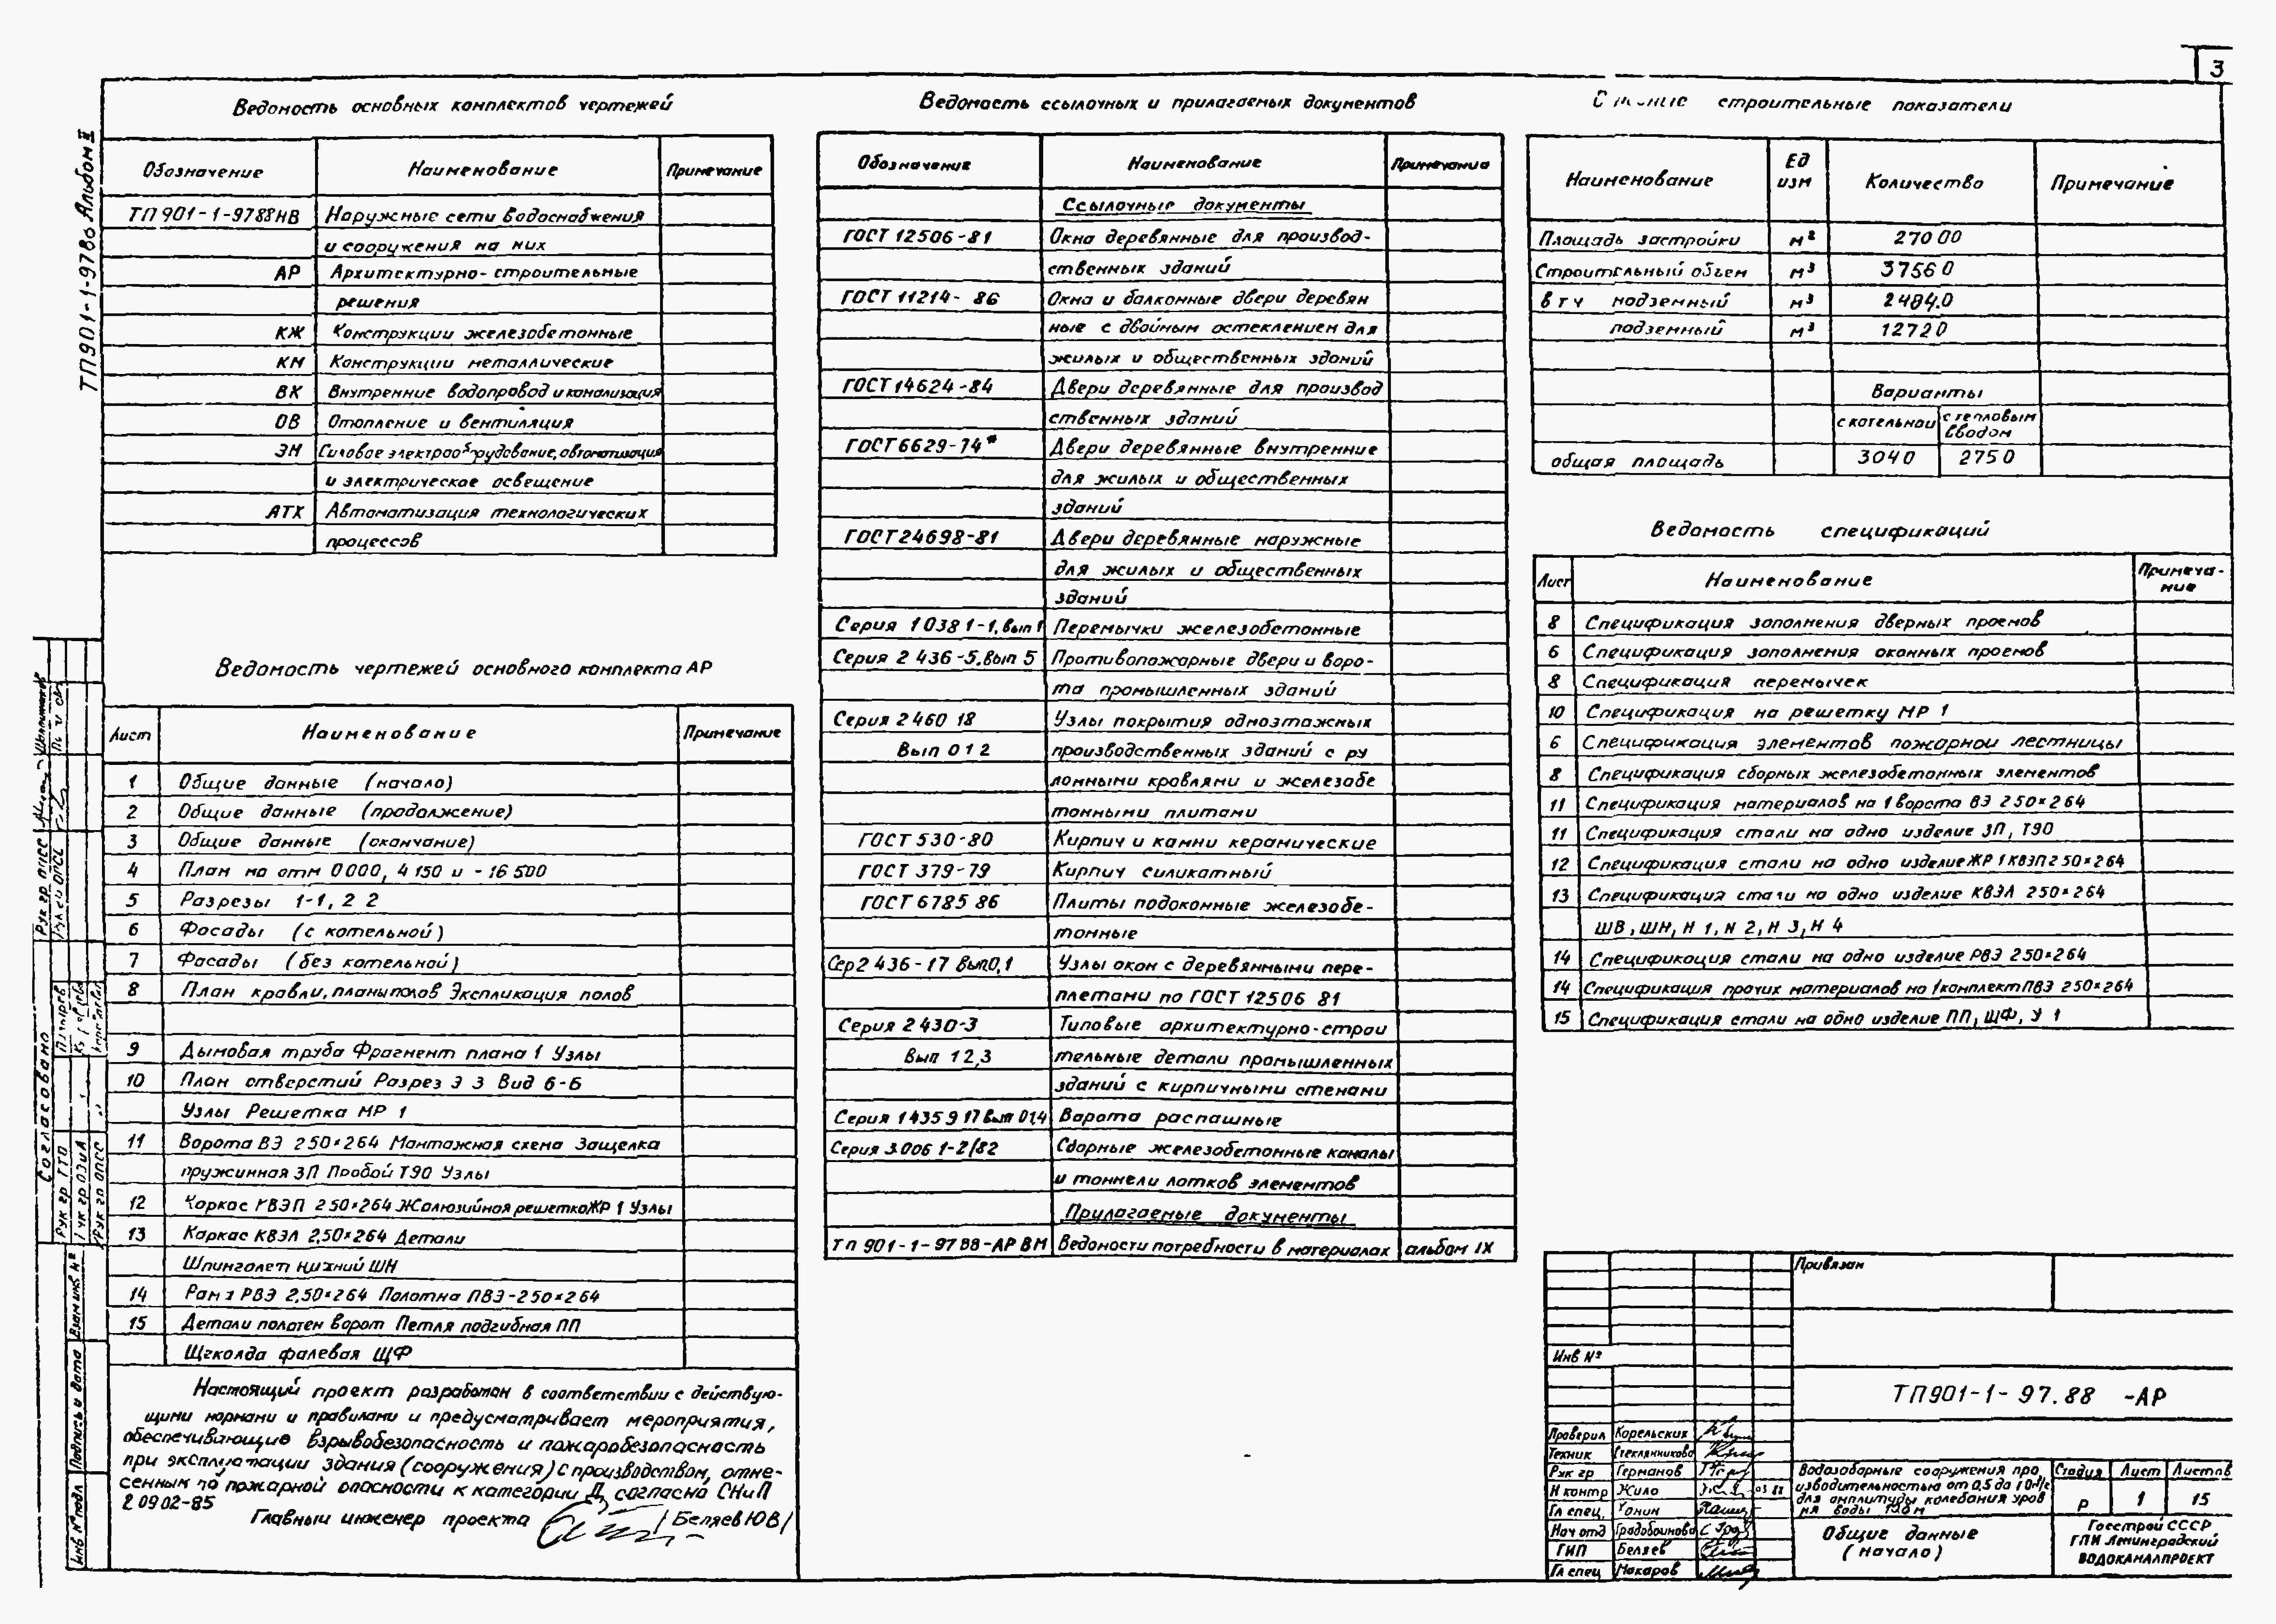 3
ТП901-1-97.88 Альбом II
Ведомость основных комплектов чертежей
Обозначение Наименование Примечание
ТП 901-1-97 88 НВ Наружные сети водоснабжения
и сооружения на них
АР Архитектурно-строительные
решения
КЖ Конструкции железобетонные
КМ Конструкции металлические
ВК Внутренние водопровод и канализация
ОВ Отопление и вентиляция
ЭМ Силовое электрооборудование, автоматизация
и электрическое освещение
АТХ Автоматизация технологических
процессов
Ведомость чертежей основного комплекта АР
Лист Наименование Примечание
1 Общие данные (начало)
2 Общие данные (продолжение)
3 Общие данные (окончание)
4 План на отм 0 000, 4 150 и -16 500
5 Разрезы 1-1, 2 2
6 Фасады (с котельной)
7 Фасады (без котельной)
8 План кровли, планы полов Экспликация полов
9 Дымовая труба Фрагмент плана 1 Узлы
10 План отверстий Разрез 3 3 Вид б-б
Узлы Решетка МР 1
11 Ворота ВЭ 2 50×2 64 Монтажная схема Защелка
пружинная ЗП Пробой Т90 Узлы
12 Каркас КВЭП 2 50×2 64 Жалюзийная решетка ЖР 1 Узлы
13 Каркас КВЭЛ 2,50×2 64 Детали
Шпингалет нижний ШН
14 Рама РВЭ 2,50×2 64 Полотна ПВЭ-2 50×2 64
15 Детали полотен ворот Петля подгибная ПП
Щеколда фалевая ЩФ
Настоящий проект разработан в соответствии с действую-
щими нормами и правилами и предусматривает мероприятия,
обеспечивающие взрывобезопасность и пожаробезопасность
при эксплуатации здания (сооружения) с производством, отне-
сенным по пожарной опасности к категории Д согласно СНиП
2 09 02-85
Главный инженер проекта / Беляев Ю В /
Ведомость ссылочных и прилагаемых документов
Обозначение Наименование Примечания
Ссылочные документы
ГОСТ 12506-81 Окна деревянные для производ-
ственных зданий
ГОСТ 11214- 86 Окна и балконные двери деревян
ные с двойным остеклением для
жилых и общественных зданий
ГОСТ 14624-84 Двери деревянные для производ
ственных зданий
ГОСТ 6629-74* Двери деревянные внутренние
для жилых и общественных
зданий
ГОСТ 24698-81 Двери деревянные наружные
для жилых и общественных
зданий
Серия 1 038 1-1, вып 1 Перемычки железобетонные
Серия 2 436-5. вып 5 Противопожарные двери и воро-
та промышленных зданий
Серия 2 460 18 Узлы покрытия одноэтажных
Вып 0 1 2 производственных зданий с ру
лонными кровлями и железобе
тонными плитами
ГОСТ 530-80 Кирпич и камни керамические
ГОСТ 379-79 Кирпич силикатный
ГОСТ 6785 86 Плиты подоконные железобе-
тонные
Сер 2 436-17 вып 0,1 Узлы окон с деревянными пере-
плетами по ГОСТ 12506 81
Серия 2 430-3 Типовые архитектурно-строи
Вып 1 2,3 тельные детали промышленных
зданий с кирпичными стенами
Серия 1 435 9 17 вып 0 1,4 Ворота распашные
Серия 3.006 1-2/82 Сборные железобетонные каналы
и тоннели лотков элементов
Прилагаемые документы
Тп 901-1-97 88-АР ВМ Ведомости потребности в материалах альбом IX
строительные показатели
Наименование Ед изм Количество Примечание
Площадь застройки м² 270 00
Строительный объем м³ 3756 0
в т ч надземный м³ 2484.0
подземный м³ 1272 0
Варианты
с котельной с тепловым вводом
общая площадь 304 0 275 0
Ведомость спецификаций
Лист Наименование Примеча-
ние
8 Спецификация заполнения дверных проемов
6 Спецификация заполнения оконных проемов
8 Спецификация перемычек
10 Спецификация на решетку МР 1
6 Спецификация элементов пожарной лестницы
8 Спецификация сборных железобетонных элементов
11 Спецификация материалов на 1 ворота ВЭ 2 50×2 64
11 Спецификация стали на одно изделие ЗП, Т90
12 Спецификация стали на одно изделие ЖР 1 КВЭП 2 50×2 64
13 Спецификация стали на одно изделие КВЭЛ 2 50×2 64
ШВ, ШН, Н 1, Н 2, Н 3, Н 4
14 Спецификация стали на одно изделие РВЭ 2 50×2 64
14 Спецификация прочих материалов на 1 комплект ПВЭ 2 50×2 64
15 Спецификация стали на одно изделие ПП, ЩФ, У 1
Привязан
Инв №
ТП901-1-97.88 -АР
Проверил Корельских
Техник Стеклянникова
Рук гр Германов
Н контр Жило 03 88
Гл спец. Ханин
Нач отд Градобоинова
ГИП Беляев
Гл спец Макаров
Водозаборные сооружения про
изводительностью от 0,5 до 1 0 м³/с
для амплитуды колебания уров
ня воды
Стадия Лист Листов
р 1 15
Общие данные
(начало)
Госстрой СССР
ГПИ Ленинградский
ВОДОКАНАЛПРОЕКТ
Согласовано
Рук гр ТТО
Рук гр ОЭиА
Рук гр ОПСС
Инв № подл Подпись и дата Взам инв №